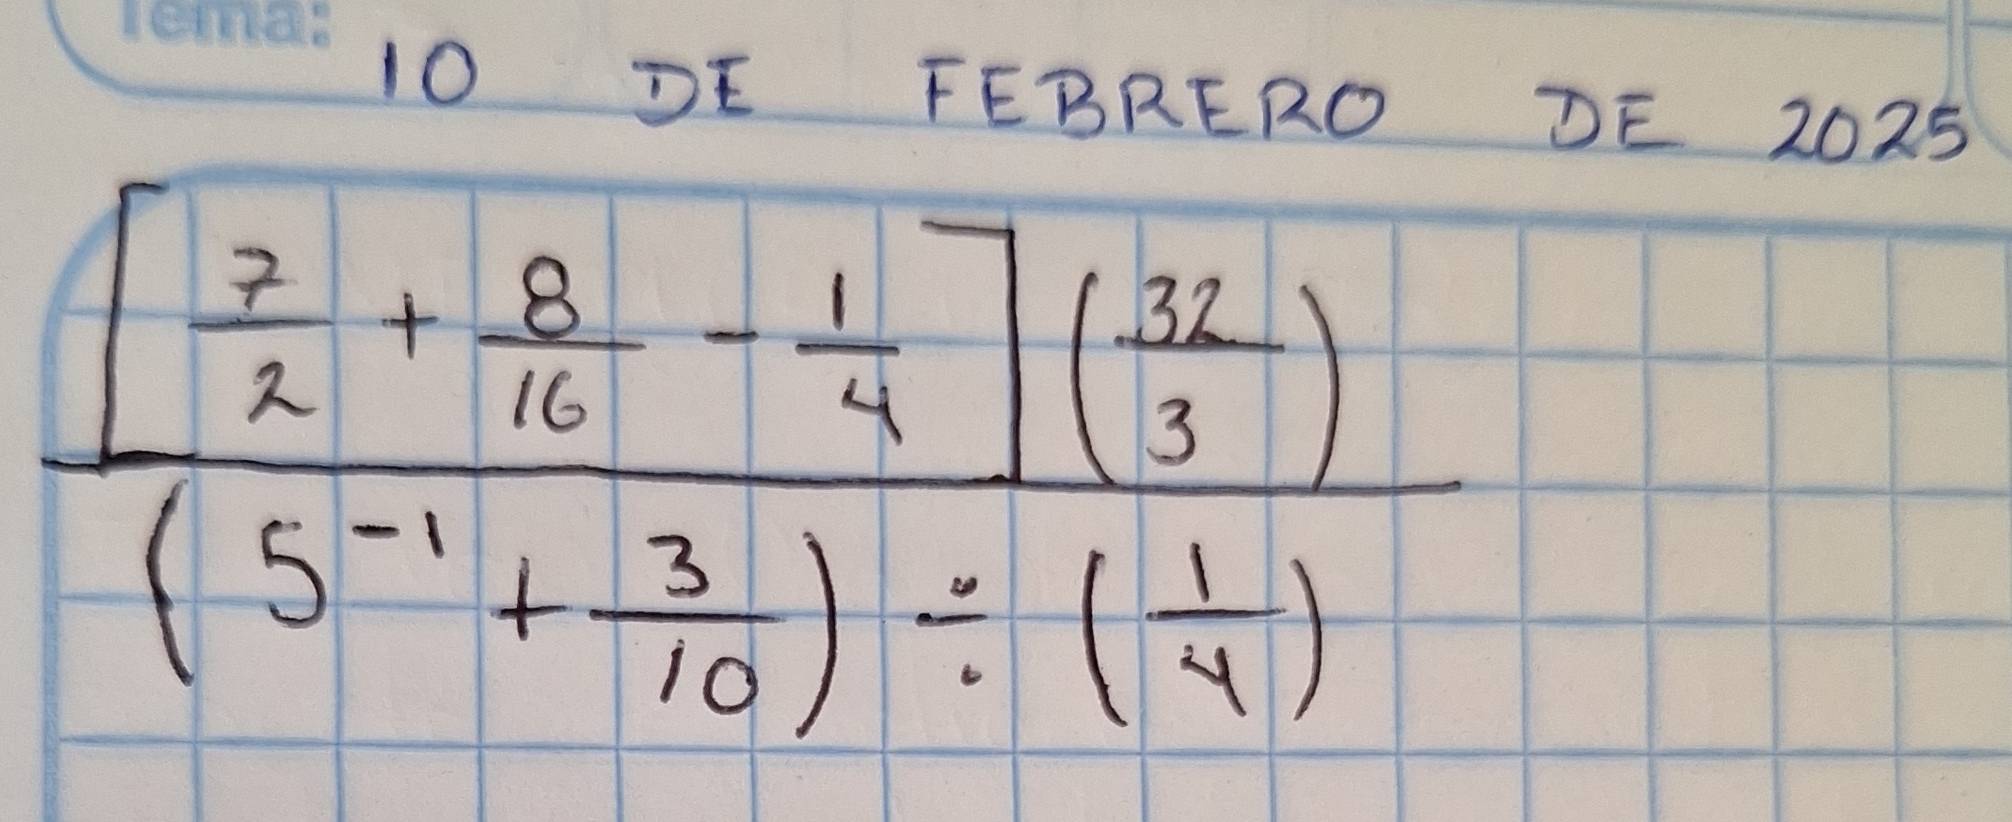 Tema:
10 DE FEBRERO DE 2025
[7/2 + 8/16 - 1/4] (32/3)
(5^-1 + 3/10) ÷ (1/4)